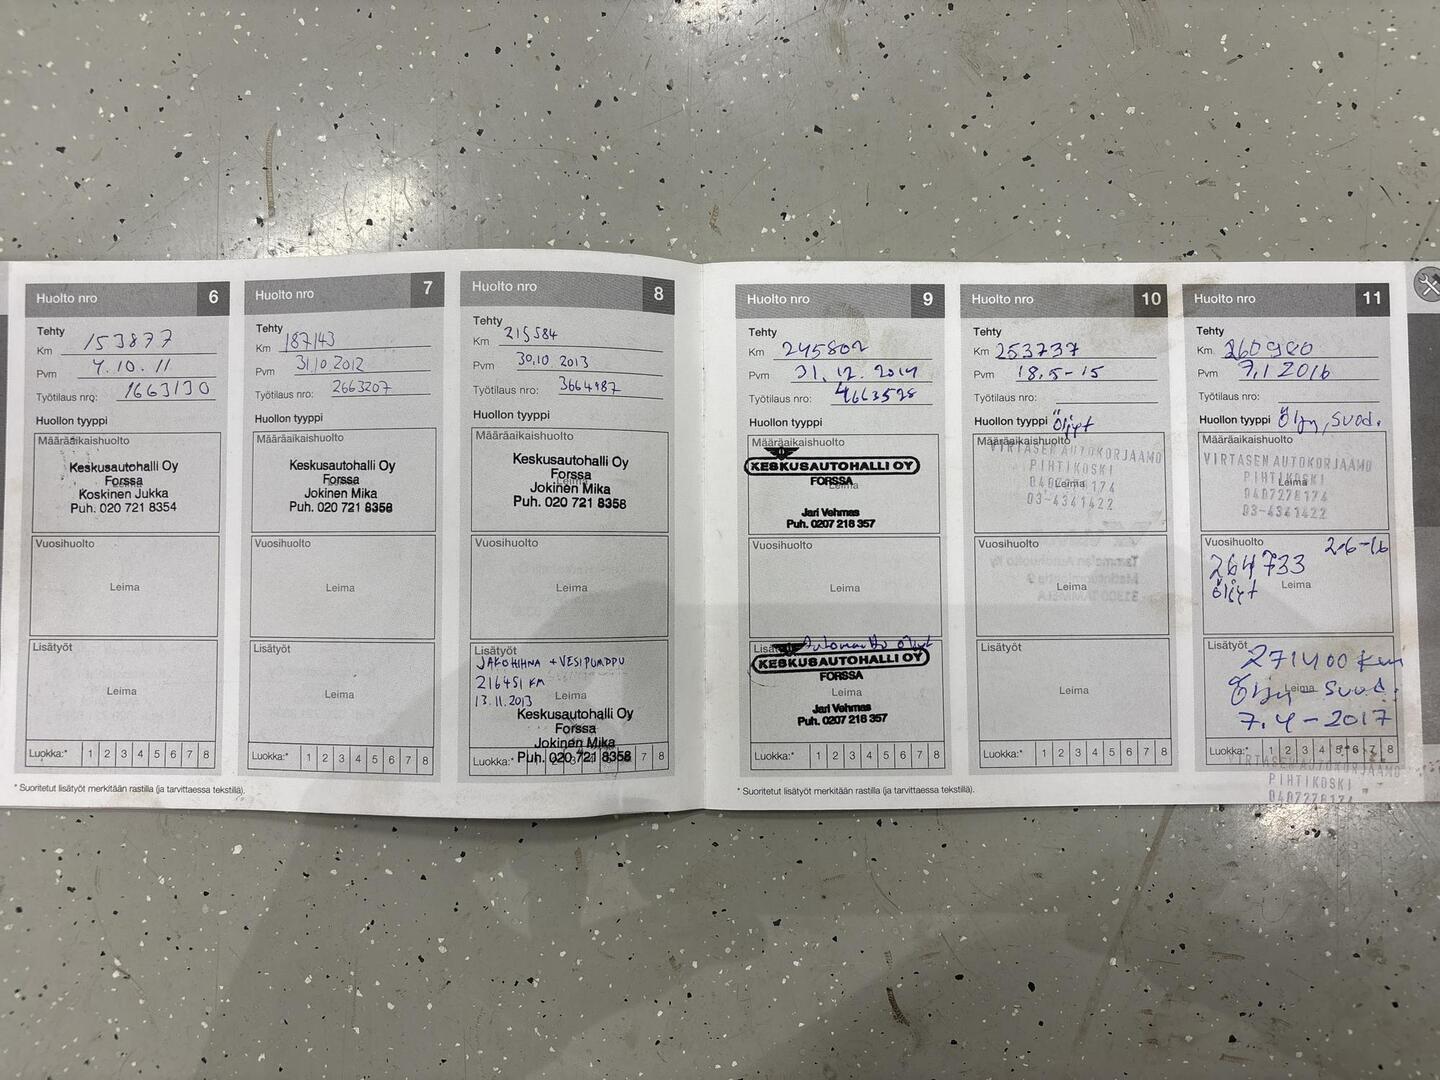 Huolto nro 6
Tehty
Km 153877
Pvm 4.10.11
Työtilaus nro: 1663130
Huollon tyyppi
Määräaikaishuolto
Keskusautohalli Oy
Forssa
Koskinen Jukka
Puh. 020 721 8354
Vuosihuolto
Leima
Lisätyöt
Leima
Luokka:* 1 2 3 4 5 6 7 8
Huolto nro 7
Tehty
Km 187143
Pvm 31.10.2012
Työtilaus nro: 2663207
Huollon tyyppi
Määräaikaishuolto
Keskusautohalli Oy
Forssa
Jokinen Mika
Puh. 020 721 8358
Vuosihuolto
Leima
Lisätyöt
Leima
Luokka:* 1 2 3 4 5 6 7 8
Huolto nro 8
Tehty
Km 215584
Pvm 30.10.2013
Työtilaus nro: 3664987
Huollon tyyppi
Määräaikaishuolto
Keskusautohalli Oy
Forssa
Jokinen Mika
Puh. 020 721 8358
Vuosihuolto
Leima
Lisätyöt
JAKOHIHNA + VESIPUMPPU
216451 KM
Leima
13.11.2013
Keskusautohalli Oy
Forssa
Jokinen Mika
Puh. 020 721 8358
Luokka:* 7 8
* Suoritetut lisätyöt merkitään rastilla (ja tarvittaessa tekstillä).
Huolto nro 9
Tehty
Km 245802
Pvm 31.12.2014
Työtilaus nro: 4663528
Huollon tyyppi
Määräaikaishuolto
KESKUSAUTOHALLI OY
FORSSA
Leima
Jari Vehmas
Puh. 0207 218 357
Vuosihuolto
Leima
Lisätyöt
KESKUSAUTOHALLI OY
FORSSA
Leima
Jari Vehmas
Puh. 0207 218 357
Luokka:* 1 2 3 4 5 6 7 8
* Suoritetut lisätyöt merkitään rastilla (ja tarvittaessa tekstillä).
Huolto nro 10
Tehty
Km 253737
Pvm 18.5-15
Työtilaus nro:
Huollon tyyppi Öljyt
Määräaikaishuolto
VIRTASEN AUTOKORJAAMO
PIHTIKOSKI
Leima
03-4341422
Vuosihuolto
Leima
Lisätyöt
Leima
Luokka:* 1 2 3 4 5 6 7 8
Huolto nro 11
Tehty
Km 260900
Pvm 7.1 2016
Työtilaus nro:
Huollon tyyppi Öljy, Suod.
Määräaikaishuolto
VIRTASEN AUTOKORJAAMO
PIHTIKOSKI
Leima
0407278174
03-4341422
Vuosihuolto 2-6-16
264733
Leima
Öljyt
Lisätyöt
271400 Km
Öljy- Suod.
Leima
7.4-2017
Luokka:* 1 2 3 4 5 6 7 8
VIRTASEN AUTOKORJAAMO
PIHTIKOSKI